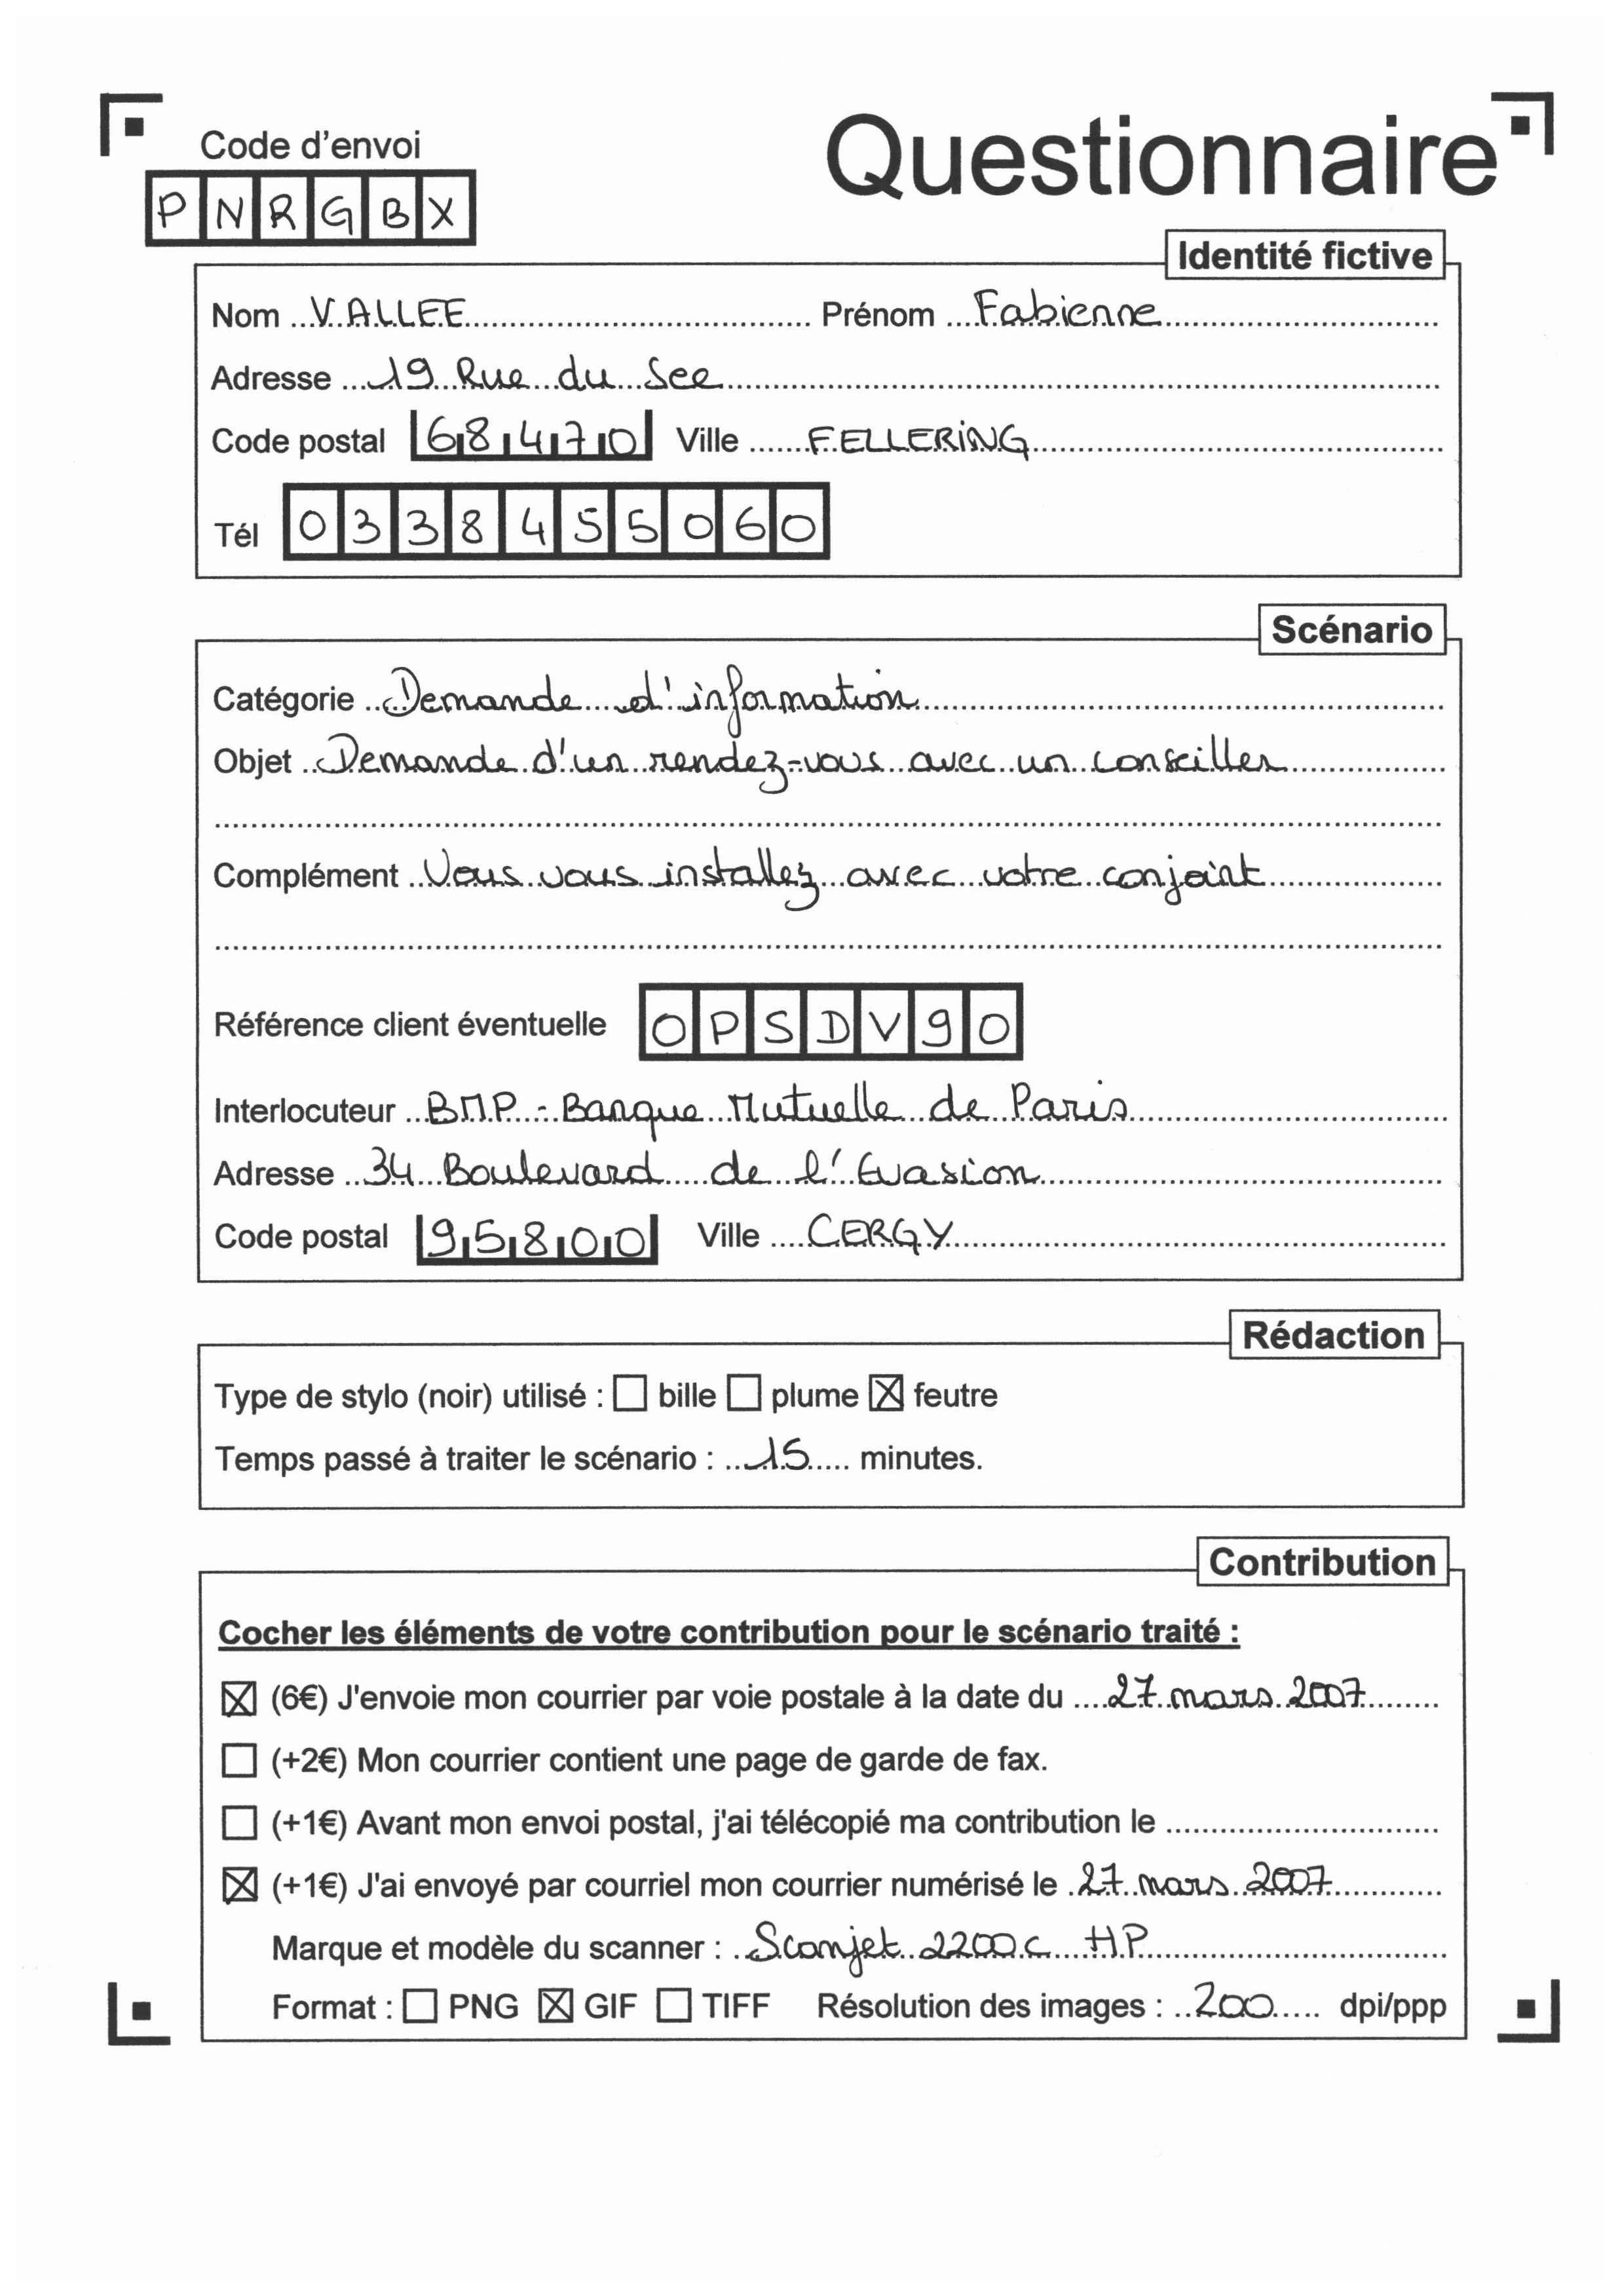 Questionnaire
Code d'envoi
PNRGBX
Identité fictive
Nom VALLEE Prénom Fabienne
Adresse 19 Rue du See
Code postal 68470 Ville FELLERING
Tél 0338455060
Scénario
Catégorie Demande d'information
Objet Demande d'un rendez-vous avec un conseiller
Complément Vous vous installez avec votre conjoint
Référence client éventuelle OPSDV90
Interlocuteur BMP - Banque Mutuelle de Paris
Adresse 34 Boulevard de l'Evasion
Code postal 95800 Ville CERGY
Rédaction
Type de stylo (noir) utilisé : ☐ bille ☐ plume ☒ feutre
Temps passé à traiter le scénario : 15 minutes.
Contribution
Cocher les éléments de votre contribution pour le scénario traité :
☒ (6€) J'envoie mon courrier par voie postale à la date du 27 mars 2007
☐ (+2€) Mon courrier contient une page de garde de fax.
☐ (+1€) Avant mon envoi postal, j'ai télécopié ma contribution le
☒ (+1€) J'ai envoyé par courriel mon courrier numérisé le 27 mars 2007
Marque et modèle du scanner : Scanjet 2200c HP
Format : ☐ PNG ☒ GIF ☐ TIFF Résolution des images : 200 dpi/ppp